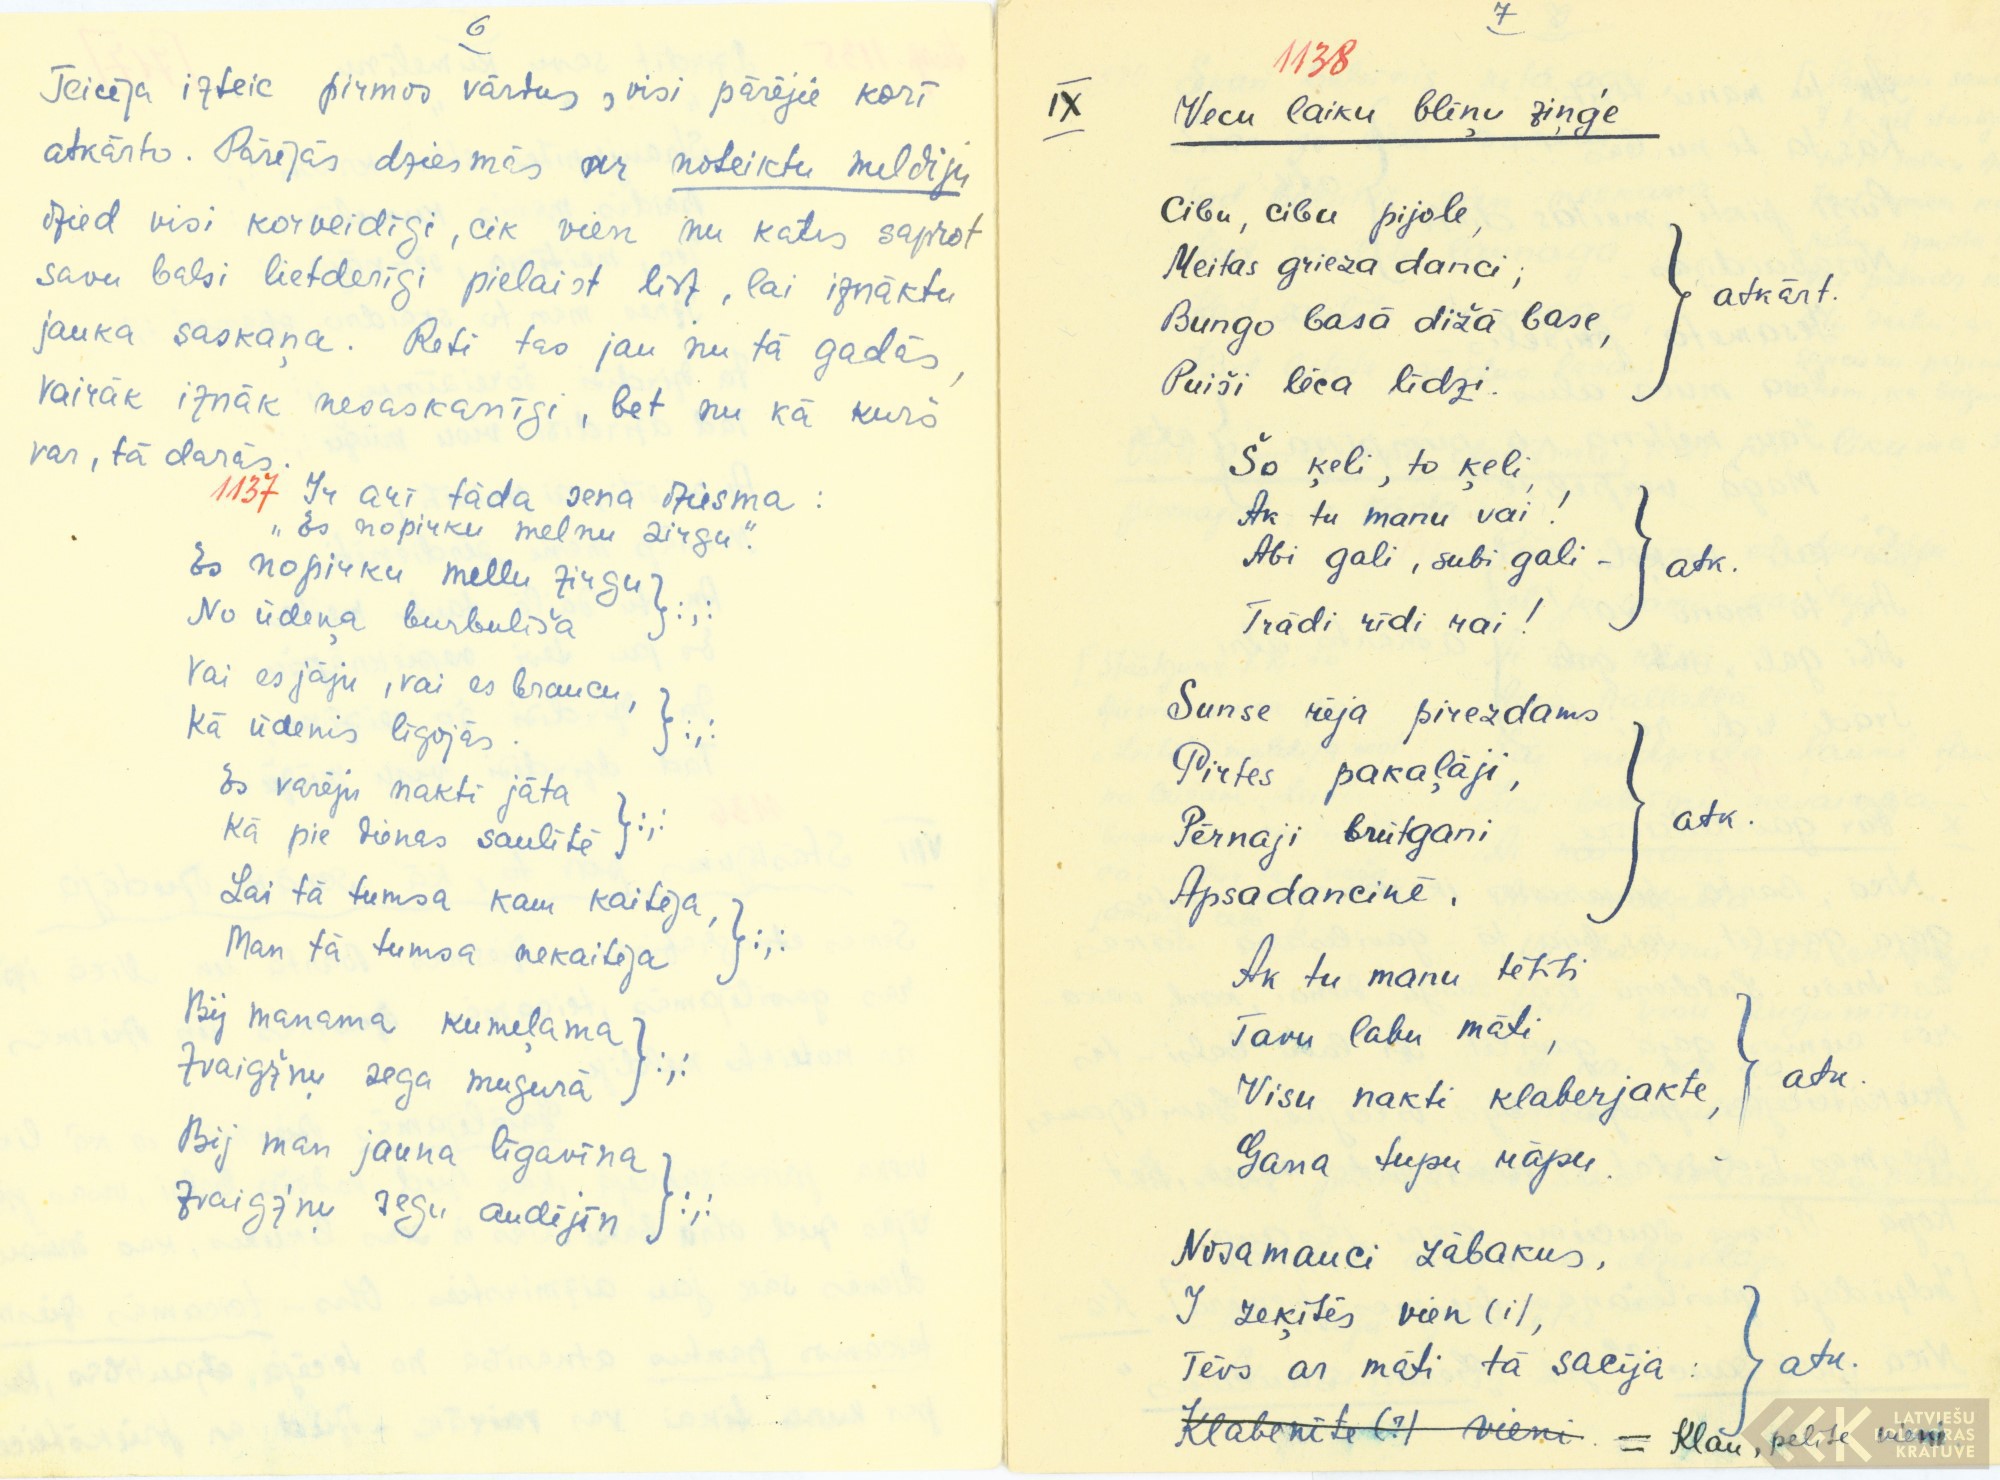 6
Teicēja izteic pirmos vārdus, visi pārējie korī
atkārto. Pārējās dziesmās ar noteiktu meldiju
dzied visi korveidīgi, cik vien nu katrs saprot
savu balsi lietderīgi pielaist līdz, lai iznāktu
jauka saskaņa. Reti tas jau nu tā gadās,
vairāk iznāk nesaskanīgi, bet nu kā kurš
var, tā darās.
1137 Ir arī tāda sena dziesma:
"Es nopirku melnu zirgu".
Es nopirku mellu zirgu
No ūdeņa burbulīša } :,:
Vai es jāju, vai es braucu,
Kā ūdenis līgojās. } :,:
Es varēju nakti jāta
Kā pie dienas saulītē } :,:
Lai tā tumsa kam kaitēja,
Man tā tumsa nekaitēja } :,:
Bij manama kumeļama
Zvaigžņu sega mugurā } :,:
Bij man jauna līgavīna
Zvaigžņu segu audējīn } :,:
7
1138
IX Vecu laiku blēņu ziņģe
Cibu, cibu pijole,
Meitas grieza danci;
Bungo basā dižā base,
Puiši lēca līdzi.
} atkārt.
Šo ķeli, to ķeli,
Ak tu manu vai!
Abi gali, subi gali -
Trādi rīdi rai!
} atk.
Sunse rēja pirezdams
Pirtes pakaļāji,
Pērnaji brūtgani
Apsadancinē.
} atk.
Ak tu manu tētīti
Tavu labu māti,
Visu nakti klaberjakte,
Gana tupu rāpu.
} atk.
Nōsamauci zābakus,
I zeķītēs vien (i),
Tēvs ar māti tā sacīja:
Klabenīte (?) vieni = Klau, pelīte vieni
} atk.
LATVIEŠU
FOLKLORAS
KRĀTUVE